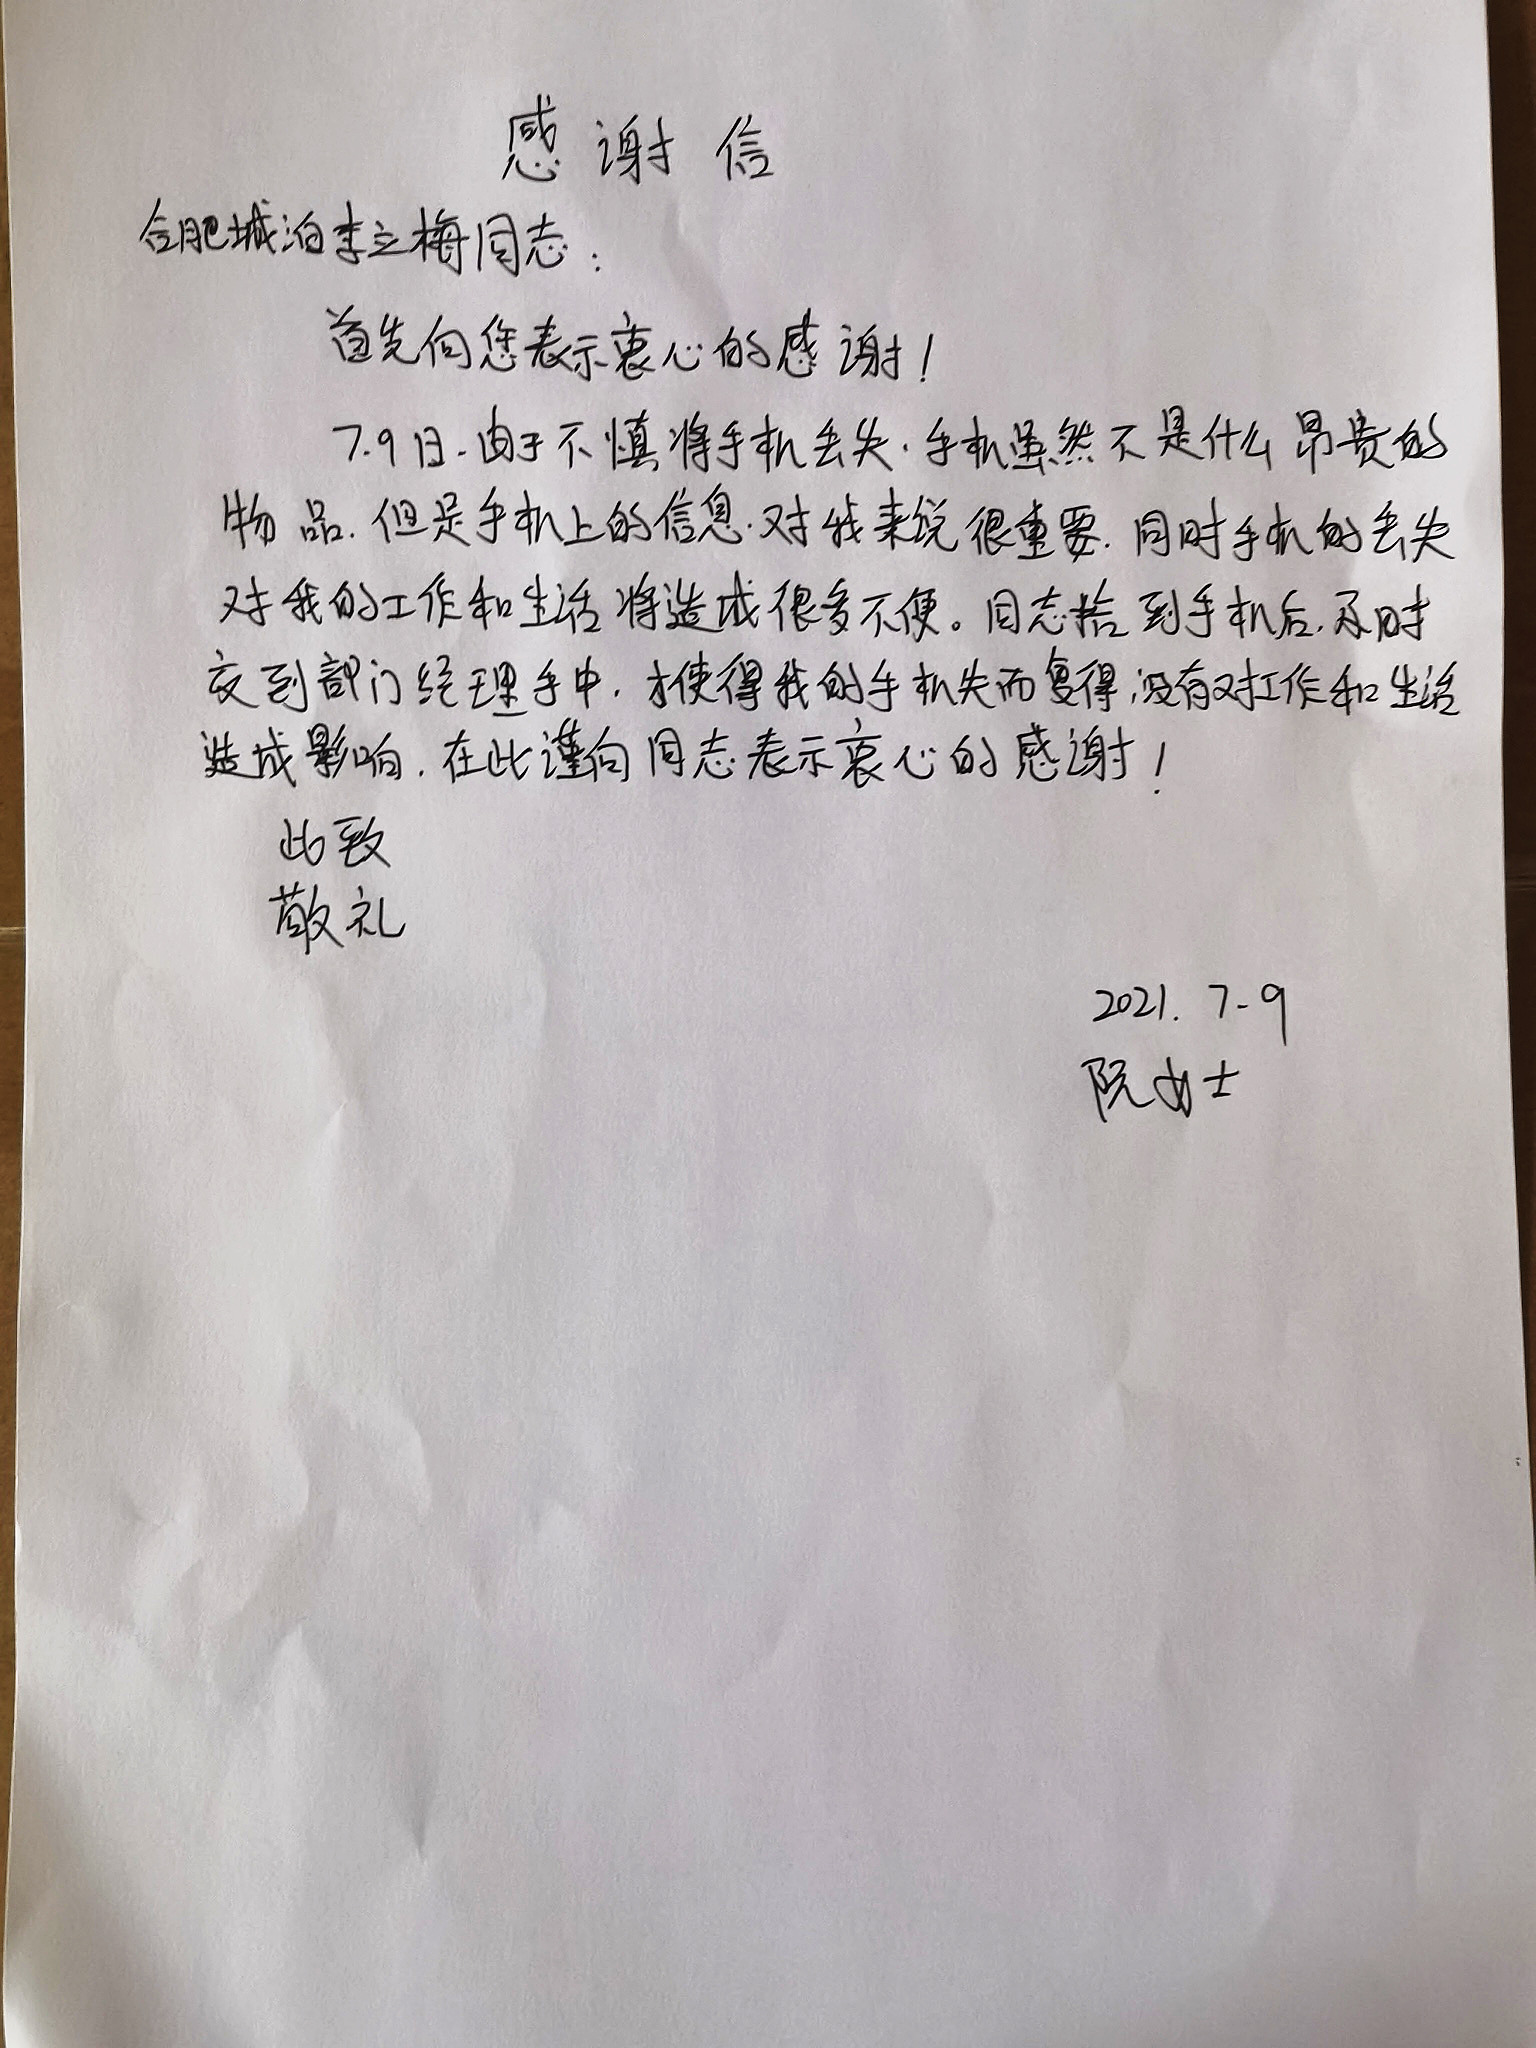 感谢信
合肥城泊李立梅同志：
首先向您表示衷心的感谢！
7.9日.由于不慎将手机丢失.手机虽然不是什么昂贵的
物品.但是手机上的信息.对我来说很重要.同时手机的丢失
对我的工作和生活将造成很多不便。同志拾到手机后.及时
交到部门经理手中.才使得我的手机失而复得,没有对工作和生活
造成影响.在此谨向同志表示衷心的感谢！
此致
敬礼
2021.7-9
阮女士